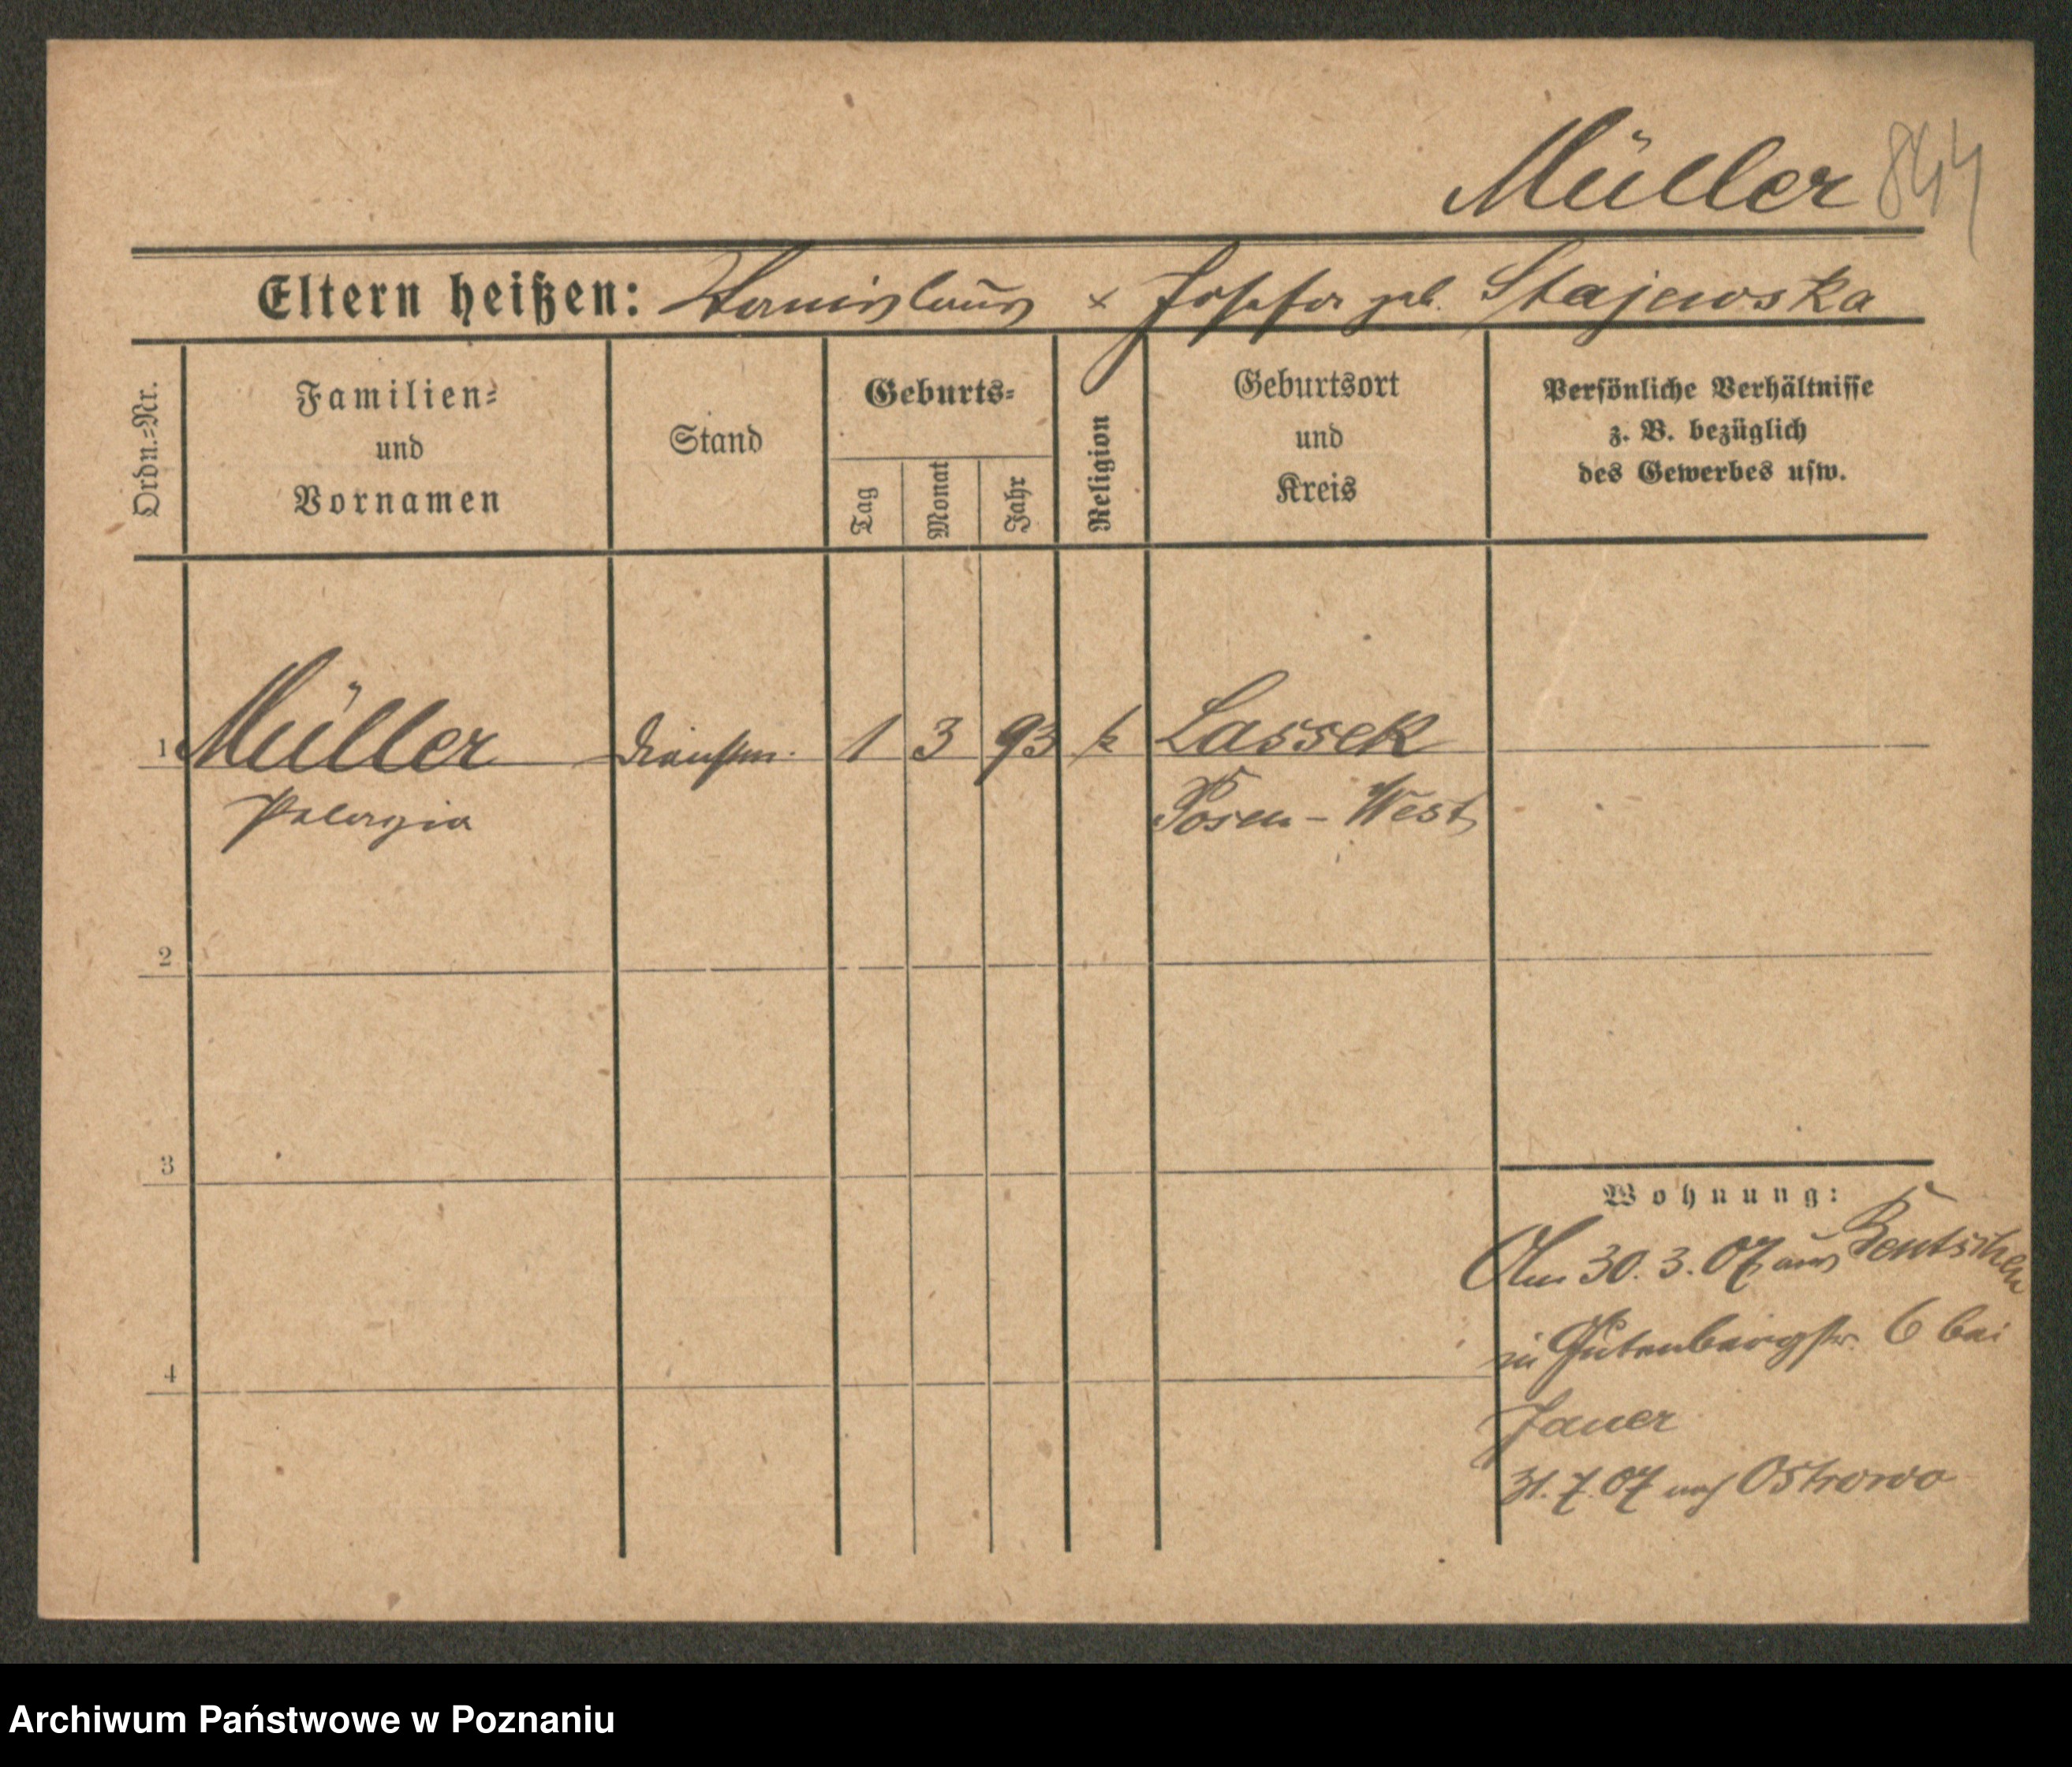 Müller 844
Eltern heißen: Stanislaus & Josefa geb. Stajewska
Ordn.=Nr.
Familien=
und
Vornamen
Stand
Geburts=
Tag
Monat
Jahr
Religion
Geburtsort
und
Kreis
Persönliche Verhältnisse
z. B. bezüglich
des Gewerbes usw.
1 Müller 1 3 93 k Lassek
Pelagia Posen-West
2
3
Wohnung:
Am 30. 3. 07 aus Bentschen
in Gutenbergstr. 6 bei
4
Jauer
31. 7. 07 nach Ostrowo
Archiwum Państwowe w Poznaniu